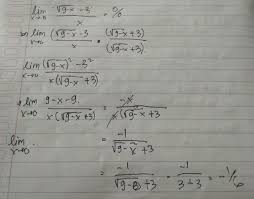 lim x→0 √9-x - 3 / x = 0/0
lim x→0 (√9-x - 3 / x) · (√9-x + 3) / (√9-x + 3)
lim x→0 (√9-x)² - 3² / x(√9-x + 3)
lim x→0 9-x-9 / x(√9-x + 3) = -x / x(√9-x + 3)
lim x→0 = -1 / √9-x + 3
= -1 / √9-0 + 3 · -1 / 3+3 = -1/6